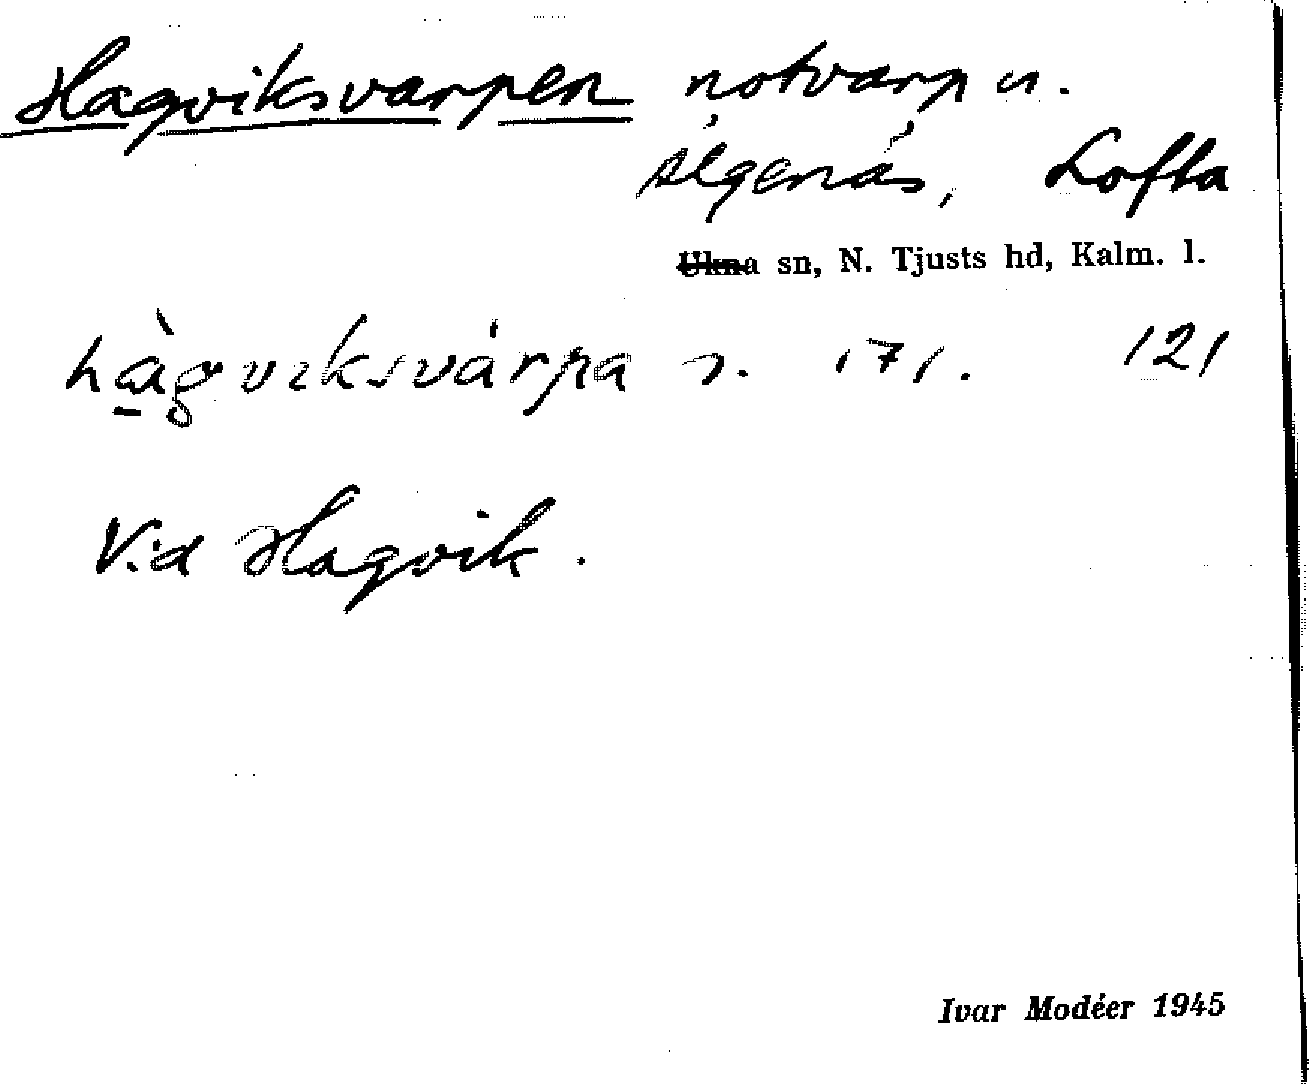 Hagviksvarpen notvarp n.
Älgenäs, Lofta
Ukna sn, N. Tjusts hd, Kalm. l.
hàgviksvárpa n. 171. 121
Vid Hagvik.
Ivar Modéer 1945